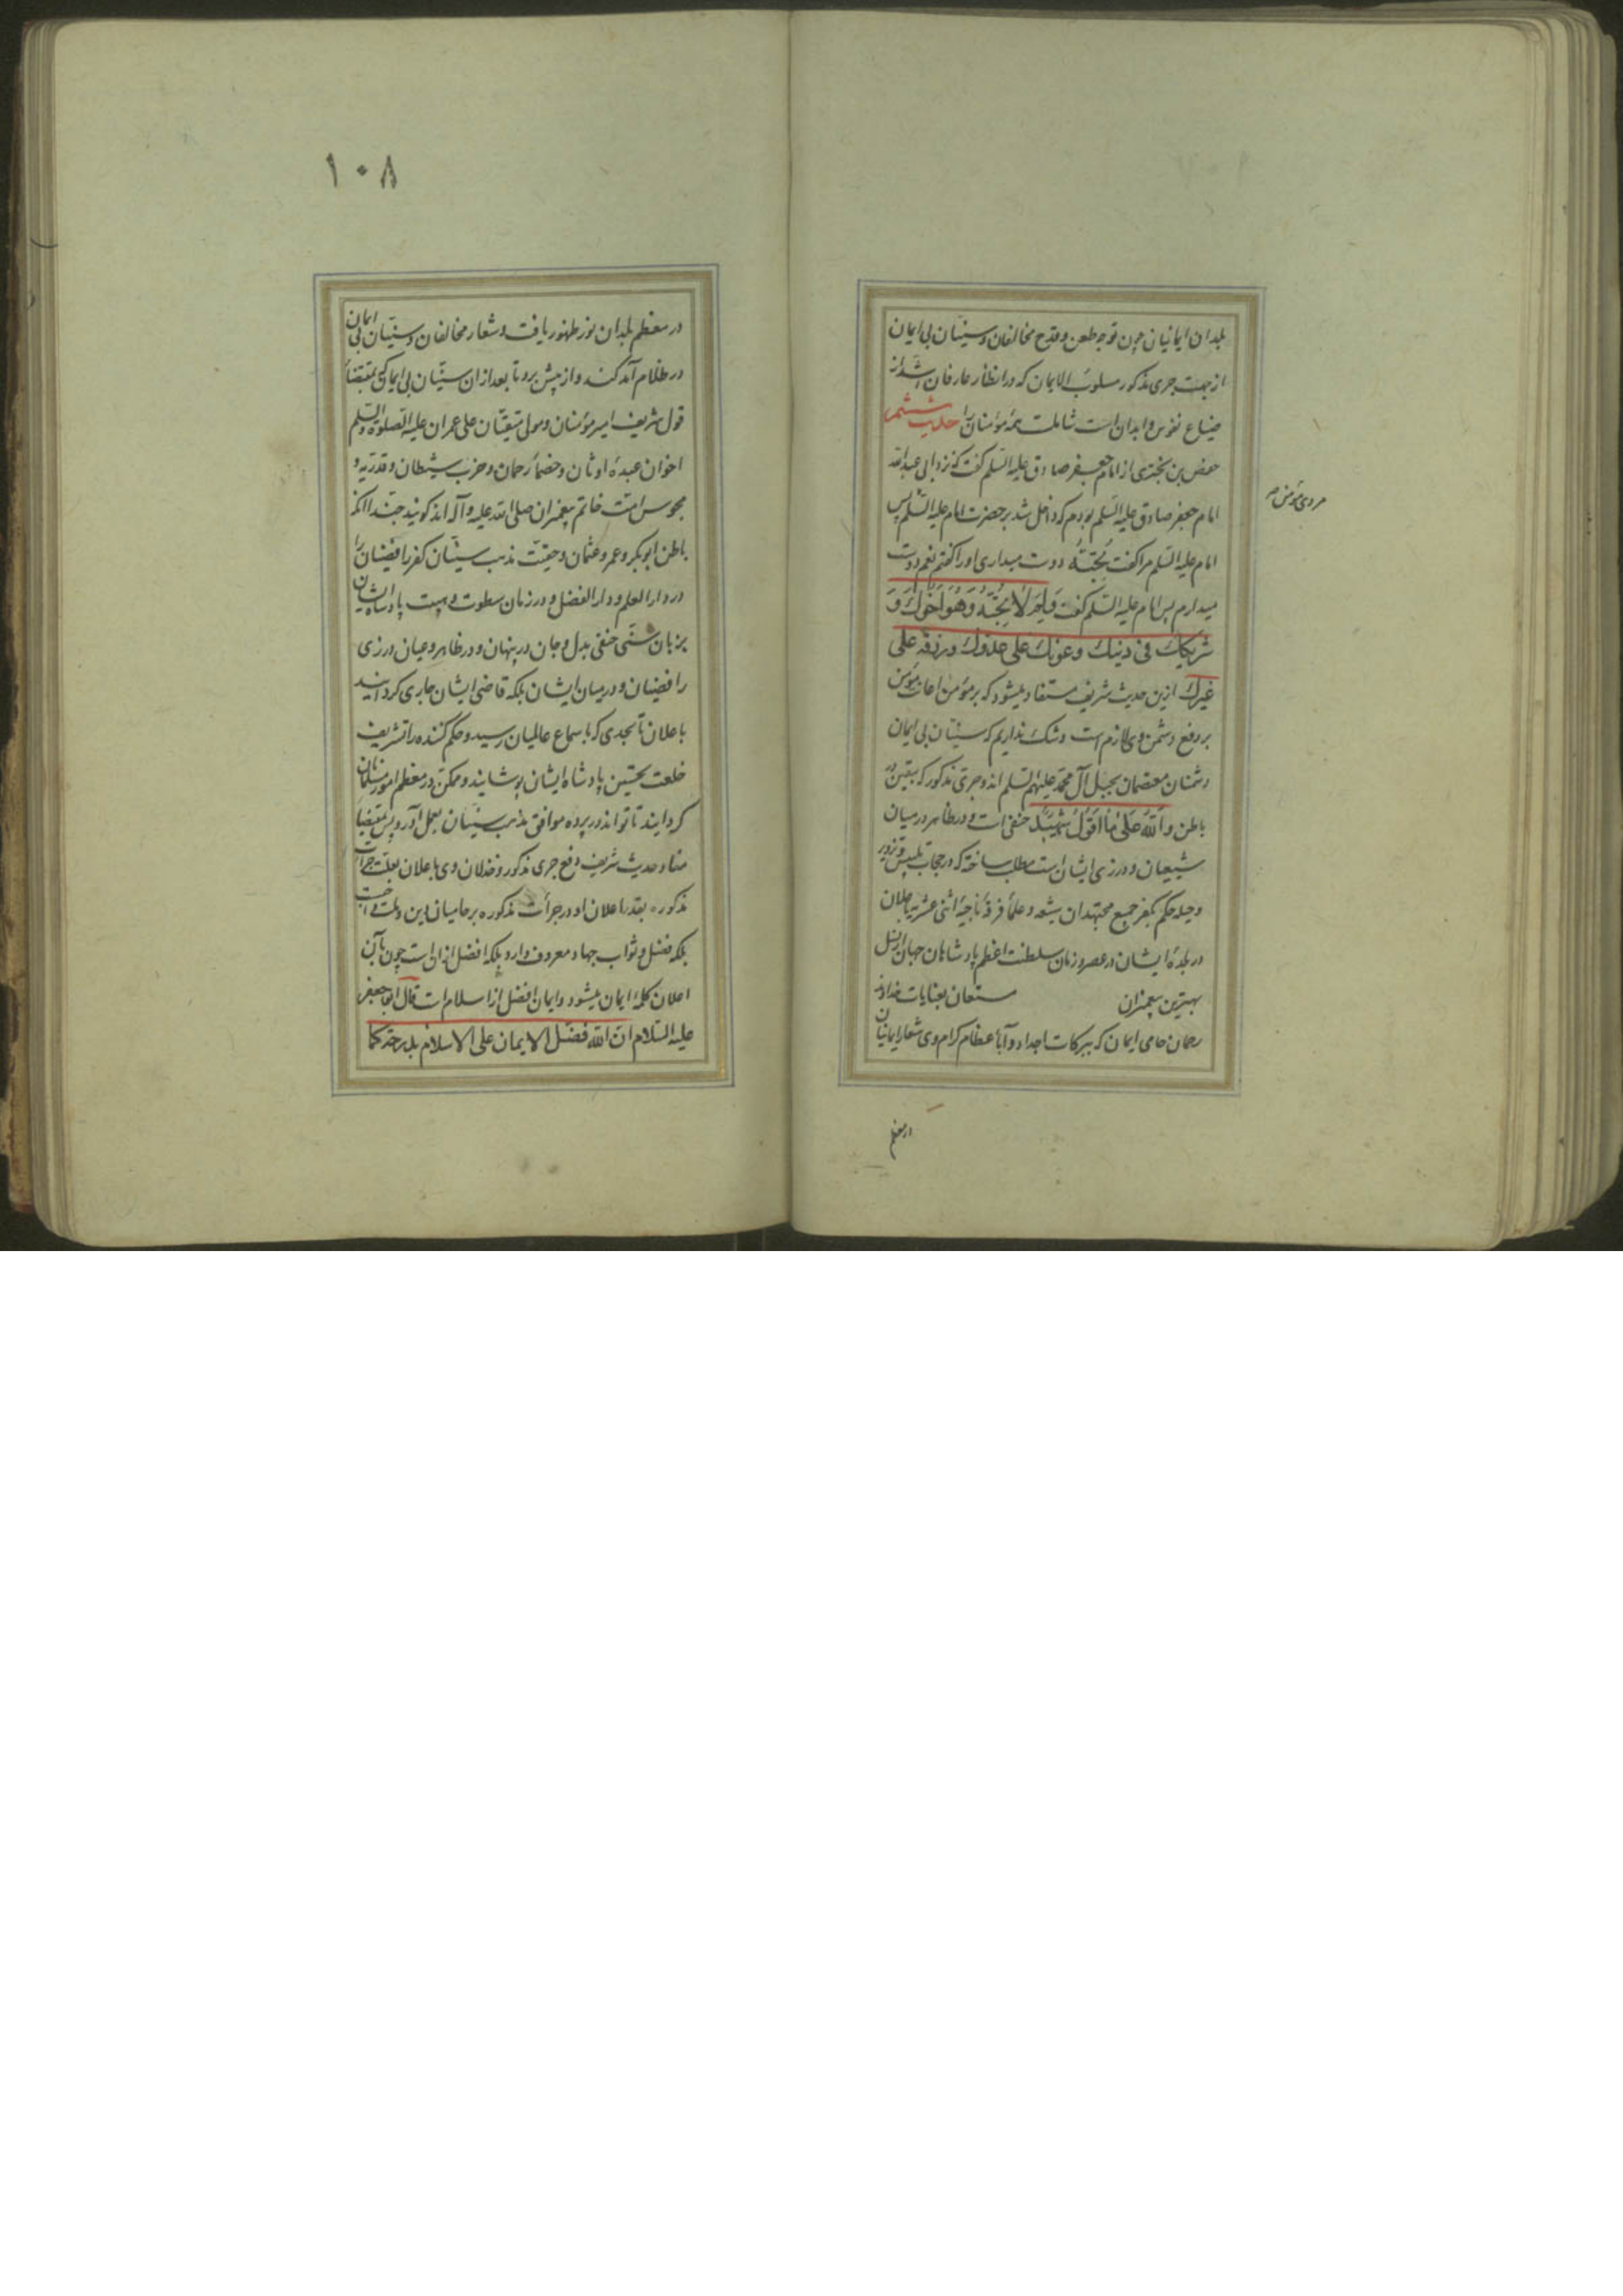 بلدان ایمانیان چون توجه طعن و قدح مخالفان و سنیّان بی ایمان
از جهت جری مذکور مسلوب الایمان که در انظار عارفان اشد از
ضیاع نفوس و ابدان است شاملست همه مؤمنان را حدیث ششم
حفص بن بختری از امام جعفر صادق علیه السّلم گفت که نزد ابی عبدالله
امام جعفر صادق علیه السّلم بودم که داخل شد بر حضرت امام علیه السّلم پس
مردی مؤمن
امام علیه السّلم مرا گفت تُحِبُّهُ دوست میداری او را گفتم نعم دوست
میدارم پس امام علیه السّلم گفت وَلِمَ لا تُحِبُّهُ وَهُوَ اَخُوكَ وَ
شریکك فی دینك وعونك علی عدوك ورزقه علی
غیرك ازین حدیث شریف مستفاد میشود که بر مؤمن اعانت مؤمن
بر دفع دشمن وی لازم است و شک نداریم که سنیّان بی ایمان
دشمنان معتصمان بحبل آل محمّد علیهم السّلم اند و جری مذکور که بیقین در
باطن وَاللهُ عَلی مٰا اَقُولُ شَهِیدٌ حنفی است و در ظاهر در میان
شیعیان و در زی ایشان است مطلب ساخته که در حجاب تلبیس و تزویر
و حیله حکم بکفر جمیع مجتهدان شیعه و علماء فرقهٔ ناجیهٔ اثنی عشریه باعلان
در بلدهٔ ایشان در عصر و زمان سلطنت اعظم پادشاهان جهان از نسل
بهترین پیغمبران مستعان بعنایات خداوند
رحمان حامی ایمان که ببرکات اجداد و آباء عظام کرام وی شعار ایمانیان
در معظم
۱۰۸
در معظم بلدان نور ظهور یافت و شعار مخالفان و سنیّان بی ایمان
در ظلام آمد کنند و از پیش برد تا بعد از ان سنیّان بی ایمان که بمقتضاء
قول شریف امیر مؤمنان و مولی متّقیان علی عمران علیه الصلوة والسّلم
اخوان عبدهٔ اوثان و خصماء رحمان و حزب شیطان و قدریه و
مجوس امّت خاتم پیغمبران صلی الله علیه و آله اند گویند حبّذا اکنه
باطن ابوبکر و عمر و عثمان و حقیّت مذهب سنیّان کفر رافضیان را
در دار العلم و دار الفضل و در زمان سطوت و هیبت پادشاه ایشان
بزبان سنّی حنفی بدل و جان در پنهان و در ظاهر و عیان در زی
رافضیان و در میان ایشان بلکه قاضی ایشان جاری گردانید
باعلان تا بحدی که باسماع عالمیان رسید و حکم کننده را تشریف
خلعت تحسین پادشاه ایشان پوشانید و ممکن در معظم امور مسلمانان
گردانید تا تواند در پرده موافق مذهب سنیّان بعمل آورد پس بمقتضاء
مفاد حدیث شریف دفع جری مذکور و خذلان وی باعلان بعلت جرأت
مذکوره بقدر اعلان او در جرأت مذکوره بر حامیان دین و ملت واجبست
بلکه فضل و ثواب جهاد معروف دارد بلکه افضل از ان است چون بآن
اعلان کلمهٔ ایمان میشود و ایمان افضل از اسلام است قال ابو جعفر
علیه السّلام ان الله فضّل الایمان علی الاسلام بدرجة کما